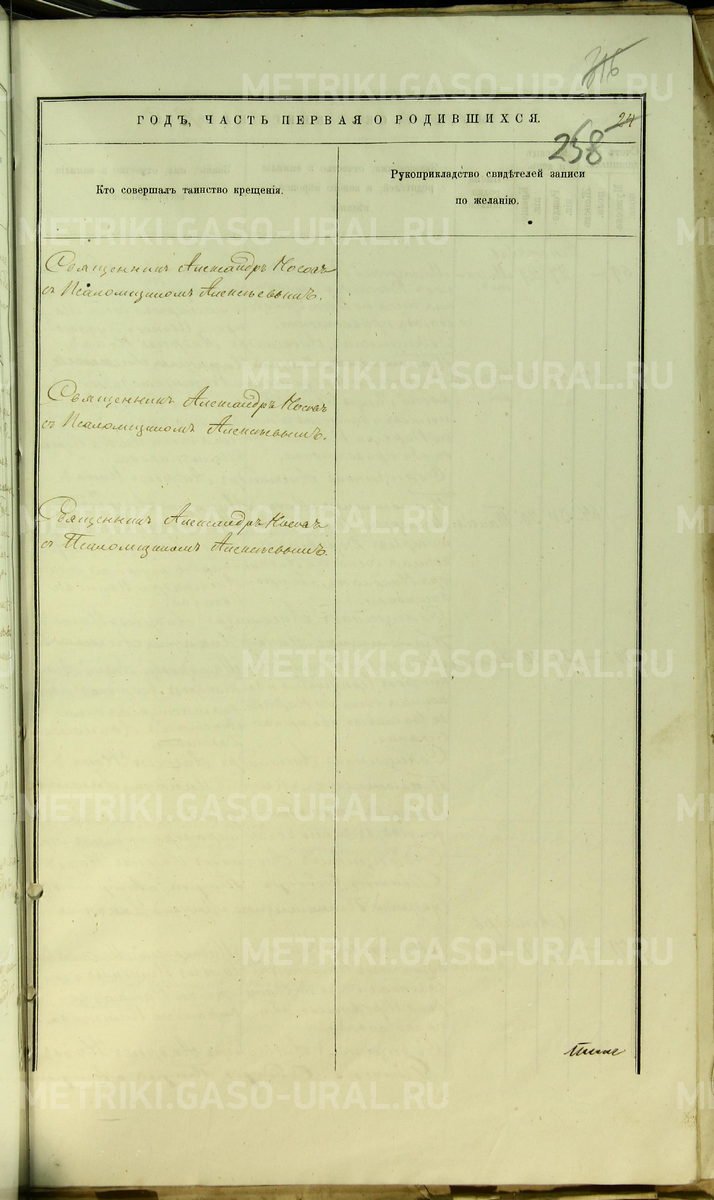 24
258
ГОДЪ, ЧАСТЬ ПЕРВАЯ О РОДИВШИХСЯ.
Кто совершалъ таинство крещенія.
Рукоприкладство свидѣтелей записи
по желанію.
Священникъ Александръ Носовъ
съ Псаломщикомъ Алексѣевымъ.
Священникъ Александръ Носовъ
съ Псаломщикомъ Алексѣевымъ.
Священникъ Александръ Носовъ
съ Псаломщикомъ Алексѣевымъ.
METRIKI.GASO-URAL.RU
METRIKI.GASO-URAL.RU
METRIKI.GASO-URAL.RU
METRIKI.GASO-URAL.RU
METRIKI.GASO-URAL.RU
METRIKI.GASO-URAL.RU
METRIKI.GASO-URAL.RU
METRIKI.GASO-URAL.RU